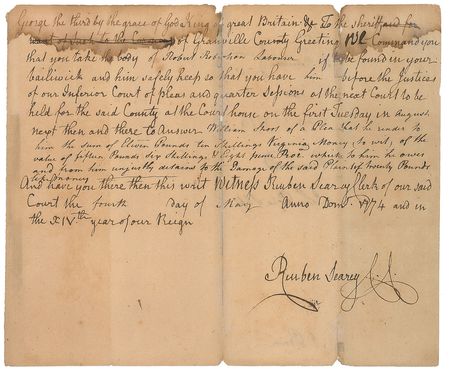 George the third by the grace of God King of great Britain &c To the sheriff and for
of Granville County Greeting We Command you
that you take the body of Robert Labourer if to be found in your
bailiwick and him safely keep so that you have him before the Justices
of our Inferior Court of pleas and quarter Sessions at the next Court to be
held for the said County at the Court house on the first Tuesday in August
next then and there to Answer William of a Plea that he render to
him the sum of Eleven Pounds ten Shillings Virginia Money, to wit, of the
value of fifteen Pounds six Shillings & Eight pence Proc. which to him he owes
and from him unjustly detains to the Damage of the said Plaintif twenty Pounds
like money
And have you there then this writ Witness Reuben Searcy Clerk of our said
Court the fourth day of May Anno Dom. 1774 and in
the XIVth year of our Reign
Reuben Searcy